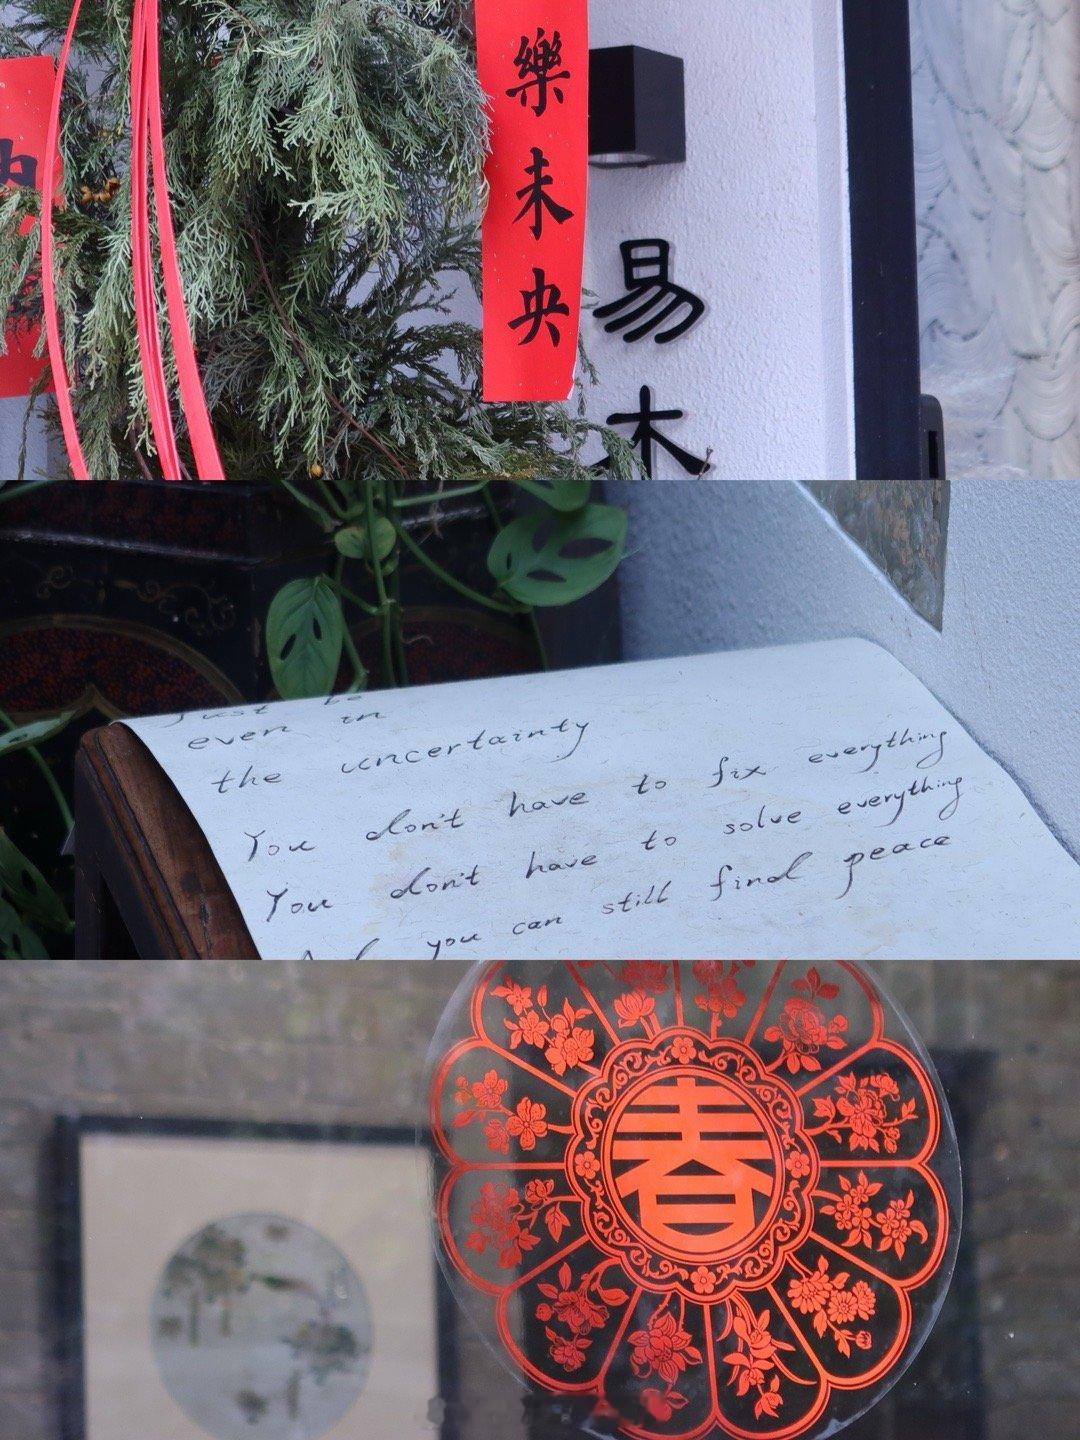 樂未央
易木
just be
even in
the uncertainty
You don't have to fix everything
You don't have to solve everything
And you can still find peace
春